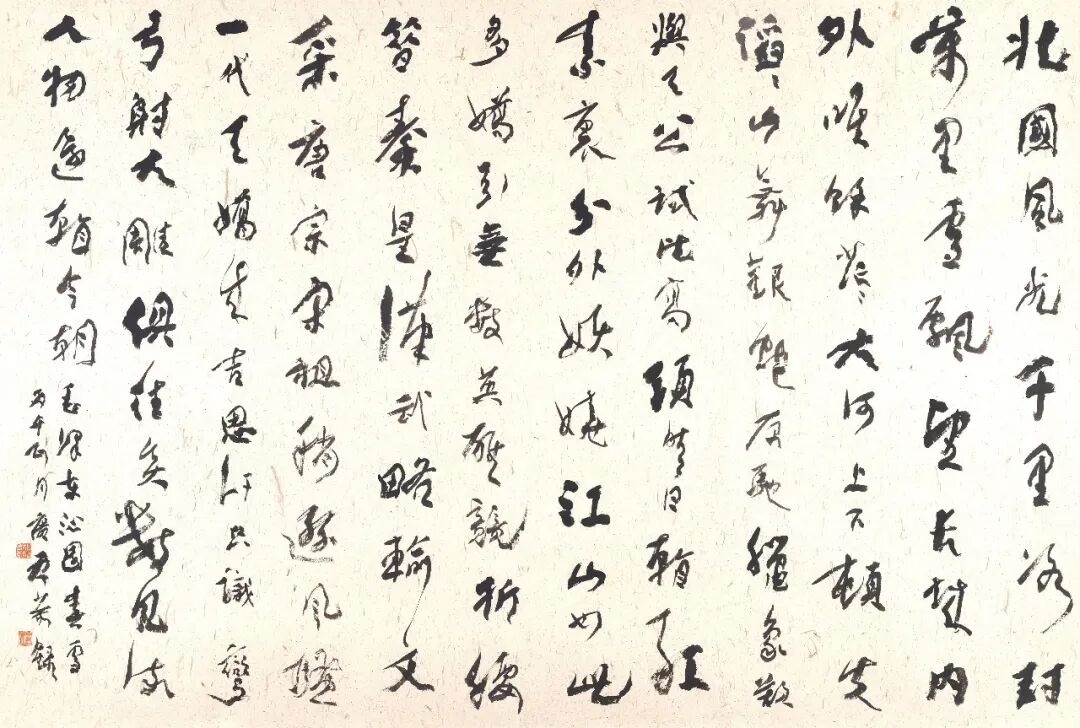 北國風光千里冰封
萬里雪飄望長城內
外唯餘莽〻大河上下頓失
滔〻山舞銀蛇原馳臘象欲
與天公試比高須晴日看紅
素裹分外妖嬈江山如此
多嬌引無數英雄競折腰
惜秦皇漢武略輸文
采唐宗宋祖稍遜風騷
一代天嬌成吉思汗只識彎
弓射大雕俱往矣數風流
人物還看今朝
毛澤東沁園春雪
丙午月錄